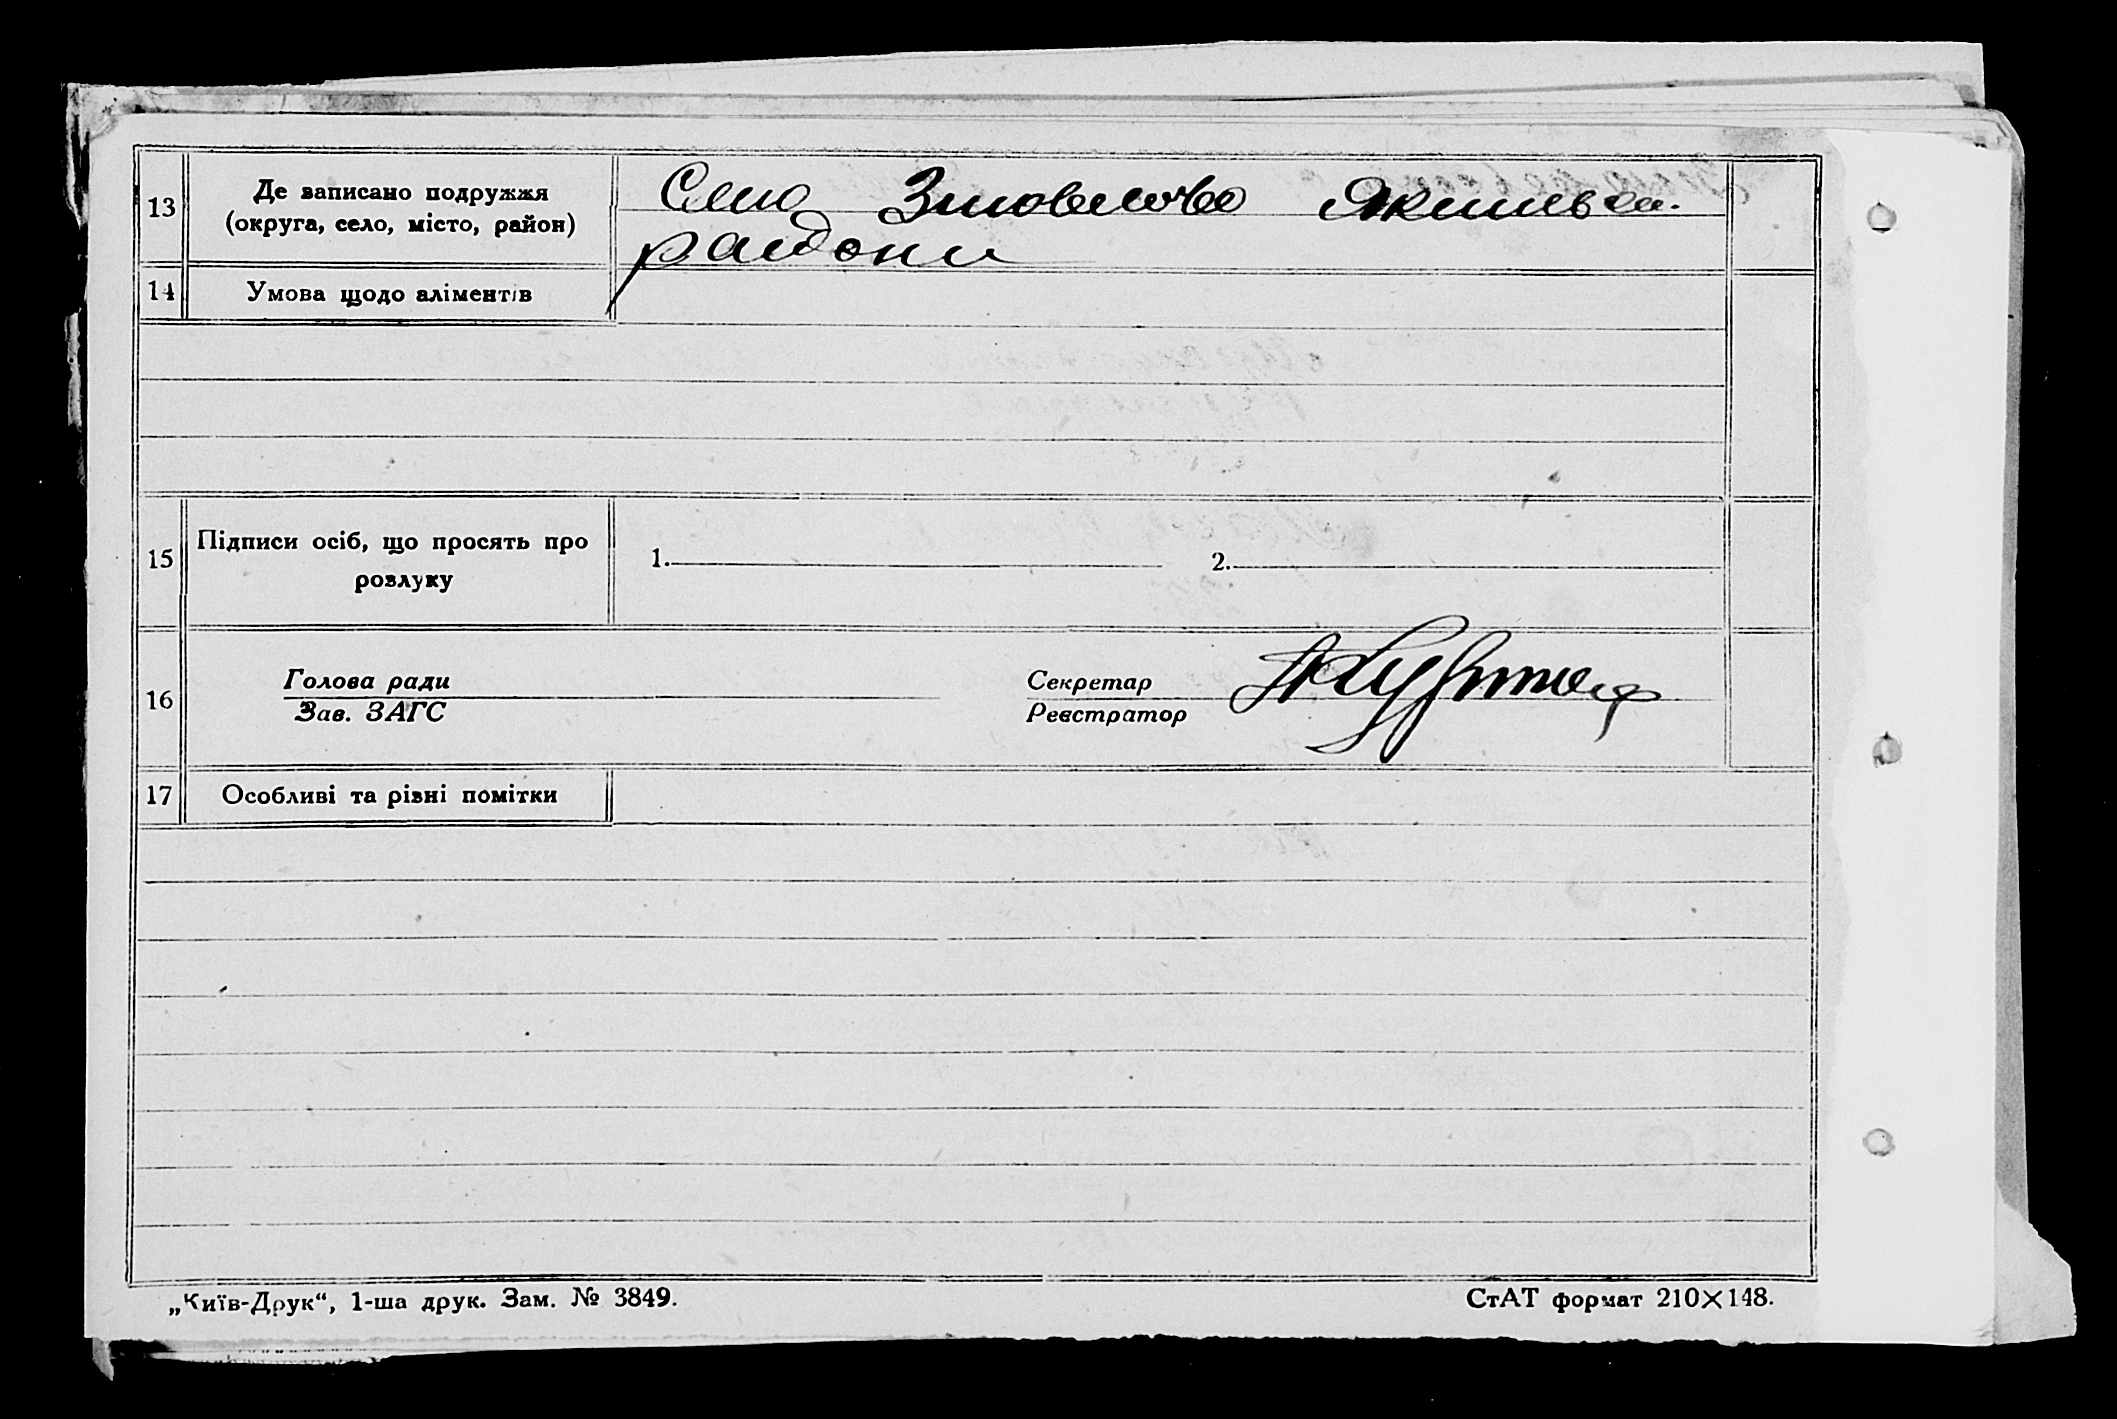 13
Де записано подружжя
(округа, село, місто, район)
Село
району
14
Умова щодо аліментів
15
Підписи осіб, що просять про
розлуку
1.
2.
16
Голова ради
Зав. ЗАГС
Секретар
Реєстратор
17
Особливі та різні помітки
„Київ-Друк“, 1-ша друк. Зам. № 3849.
СтАТ формат 210×148.